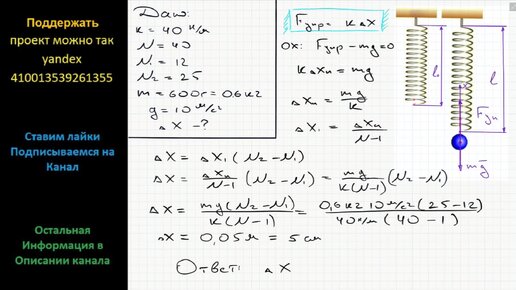 Поддержать
проект можно так
yandex
410013539261355
Ставим лайки
Подписываемся на
Канал
Остальная
Информация в
Описании канала
Дано:
k = 40 н/м
N = 40
N₁ = 12
N₂ = 25
m = 600г = 0,6 кг
g = 10 м/с²
ΔX - ?
Fупр = kΔX
OX: Fупр - mg = 0
kΔXн = mg
ΔXн = mg/k
ΔX₁ = ΔXн/(N-1)
ΔX = ΔX₁(N₂-N₁)
ΔX = ΔXн/(N-1) (N₂-N₁) = mg/(k(N-1)) (N₂-N₁)
ΔX = mg(N₂-N₁)/(k(N-1)) = 0,6кг 10 м/с² (25-12)/(40 н/м (40-1))
ΔX = 0,05 м = 5 см
Ответ: ΔX
l₀
l
x
Fуп
mg